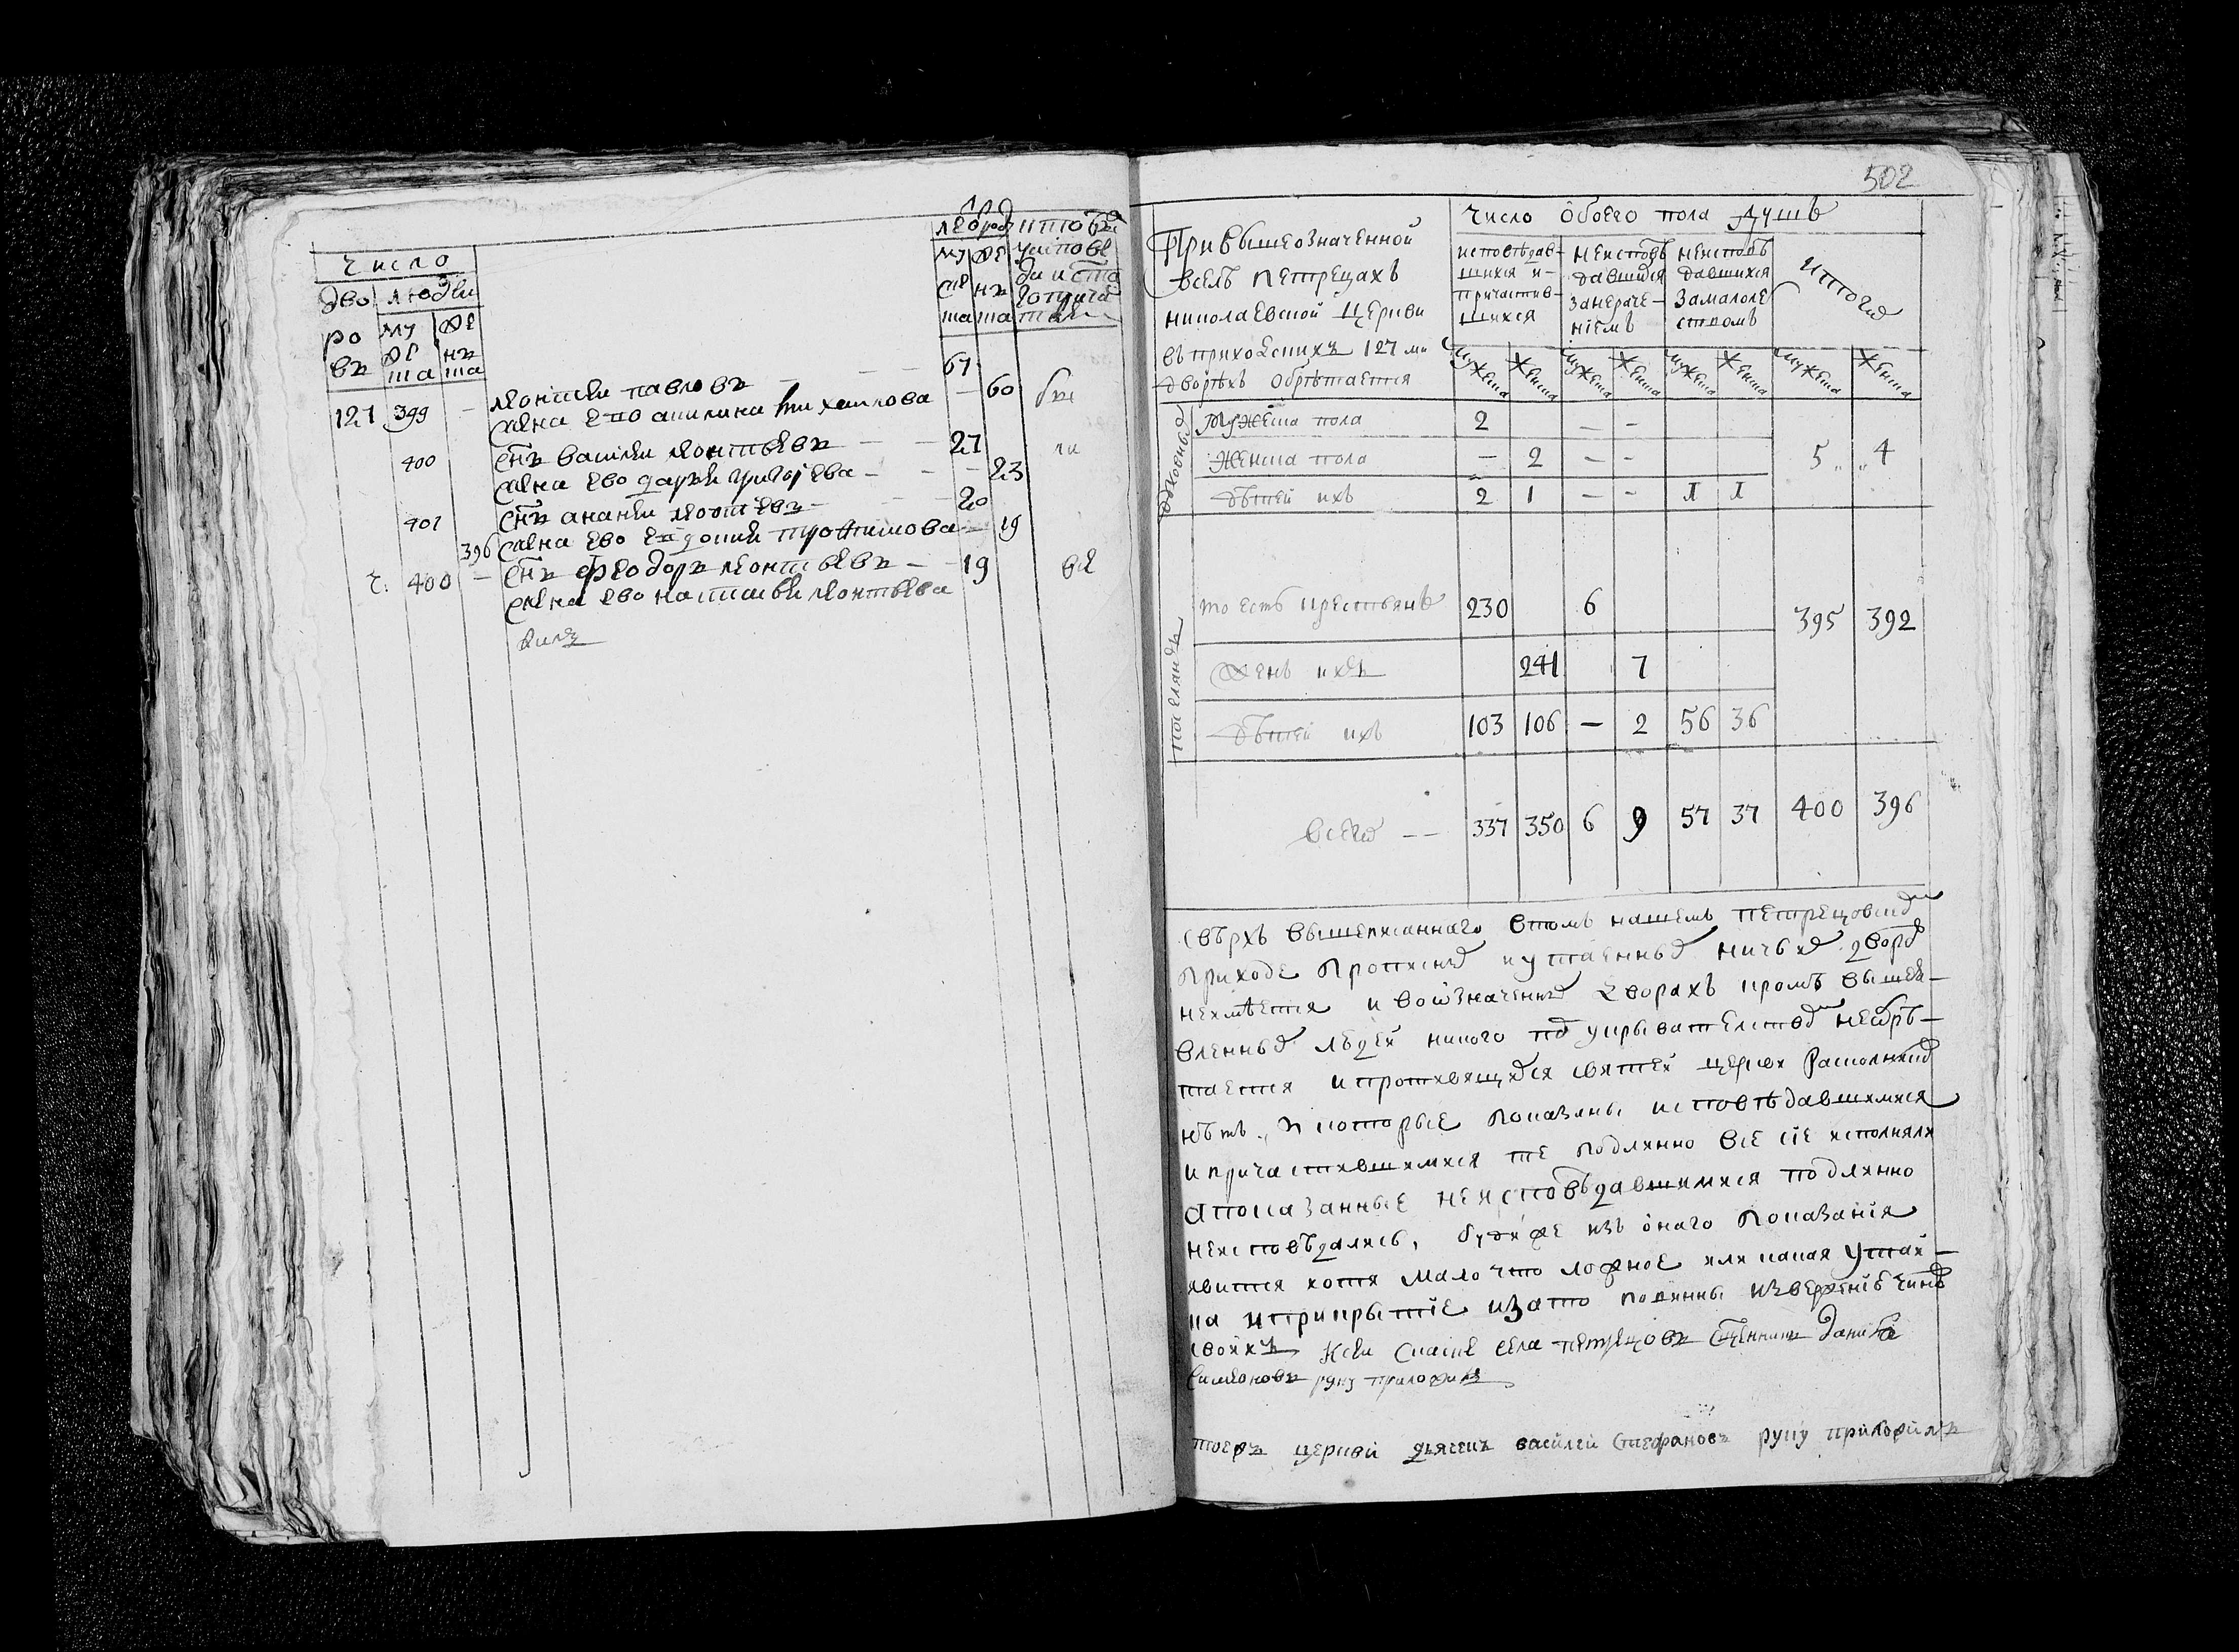 число
дво людеи
ро му же
въ же нъ
ша ша
лѣ от род
му же
же нъ
ша ша
127 399 — леонтеи павловъ — — — 67
жена ево акилина михаилова — 60
400 снъ василеи леонтьевъ — — 27
жена ево дарья григорьева — — 23
401 снъ ананеи леонтьевъ — — 20
396 жена ево евдокия трофимова — 19
г. 400 — снъ феодоръ леонтьевъ — — 19
жена ево леонтьева
502
При вышеозначенной
вселѣ петрецахъ
николаевской церкви
въ приходскихъ 127 ми
дворѣхъ обрѣтается
число обоего пола душъ
исповѣдав-
шихся и
причастив-
шихся
неисповѣ
давшихся
занераче-
ніемъ
неисповѣ
давшихся
замалоле
тствомъ
итого
мужеска женска мужеска женска мужеска женска мужеска женска
духовныхъ
мужеска пола 2 — —
женска пола — 2 — — 5 „ „ 4
дѣтей ихъ 2 1 — — 1 1
поселянъ
то есть крестьянъ 230 6 395 392
женъ ихъ 241 7
дѣтей ихъ 103 106 — 2 56 36
всего — — 337 350 6 9 57 37 400 396
свѣрхъ вышеписаннаго втомъ нашемъ петрецовскомъ
приходе прописныхъ иутаенныхъ ничьихъ дворовъ
неимѣется и воозначенныхъ дворахъ кромѣ вышея-
вленныхъ людей никого подукрывательствомъ необрѣ-
тается ипротивящихся святей церкви раскольниковъ
нѣтъ. И которые показаны исповѣдавшимися
и причастившимися те подлинно все сіе исполняли
а показанные неисповѣдавшимися подлинно
неисповѣдались, буде же изъ онаго показанія
явится хотя мало что ложное или какая утай-
ка иприкрытіе изато повинны изверженію чиновъ
своихъ Ксеи сказке села петрецовъ сщенникъ данила
симеоновъ руку приложилъ
тоежъ церкви дьячекъ василей стефановъ руку приложилъ